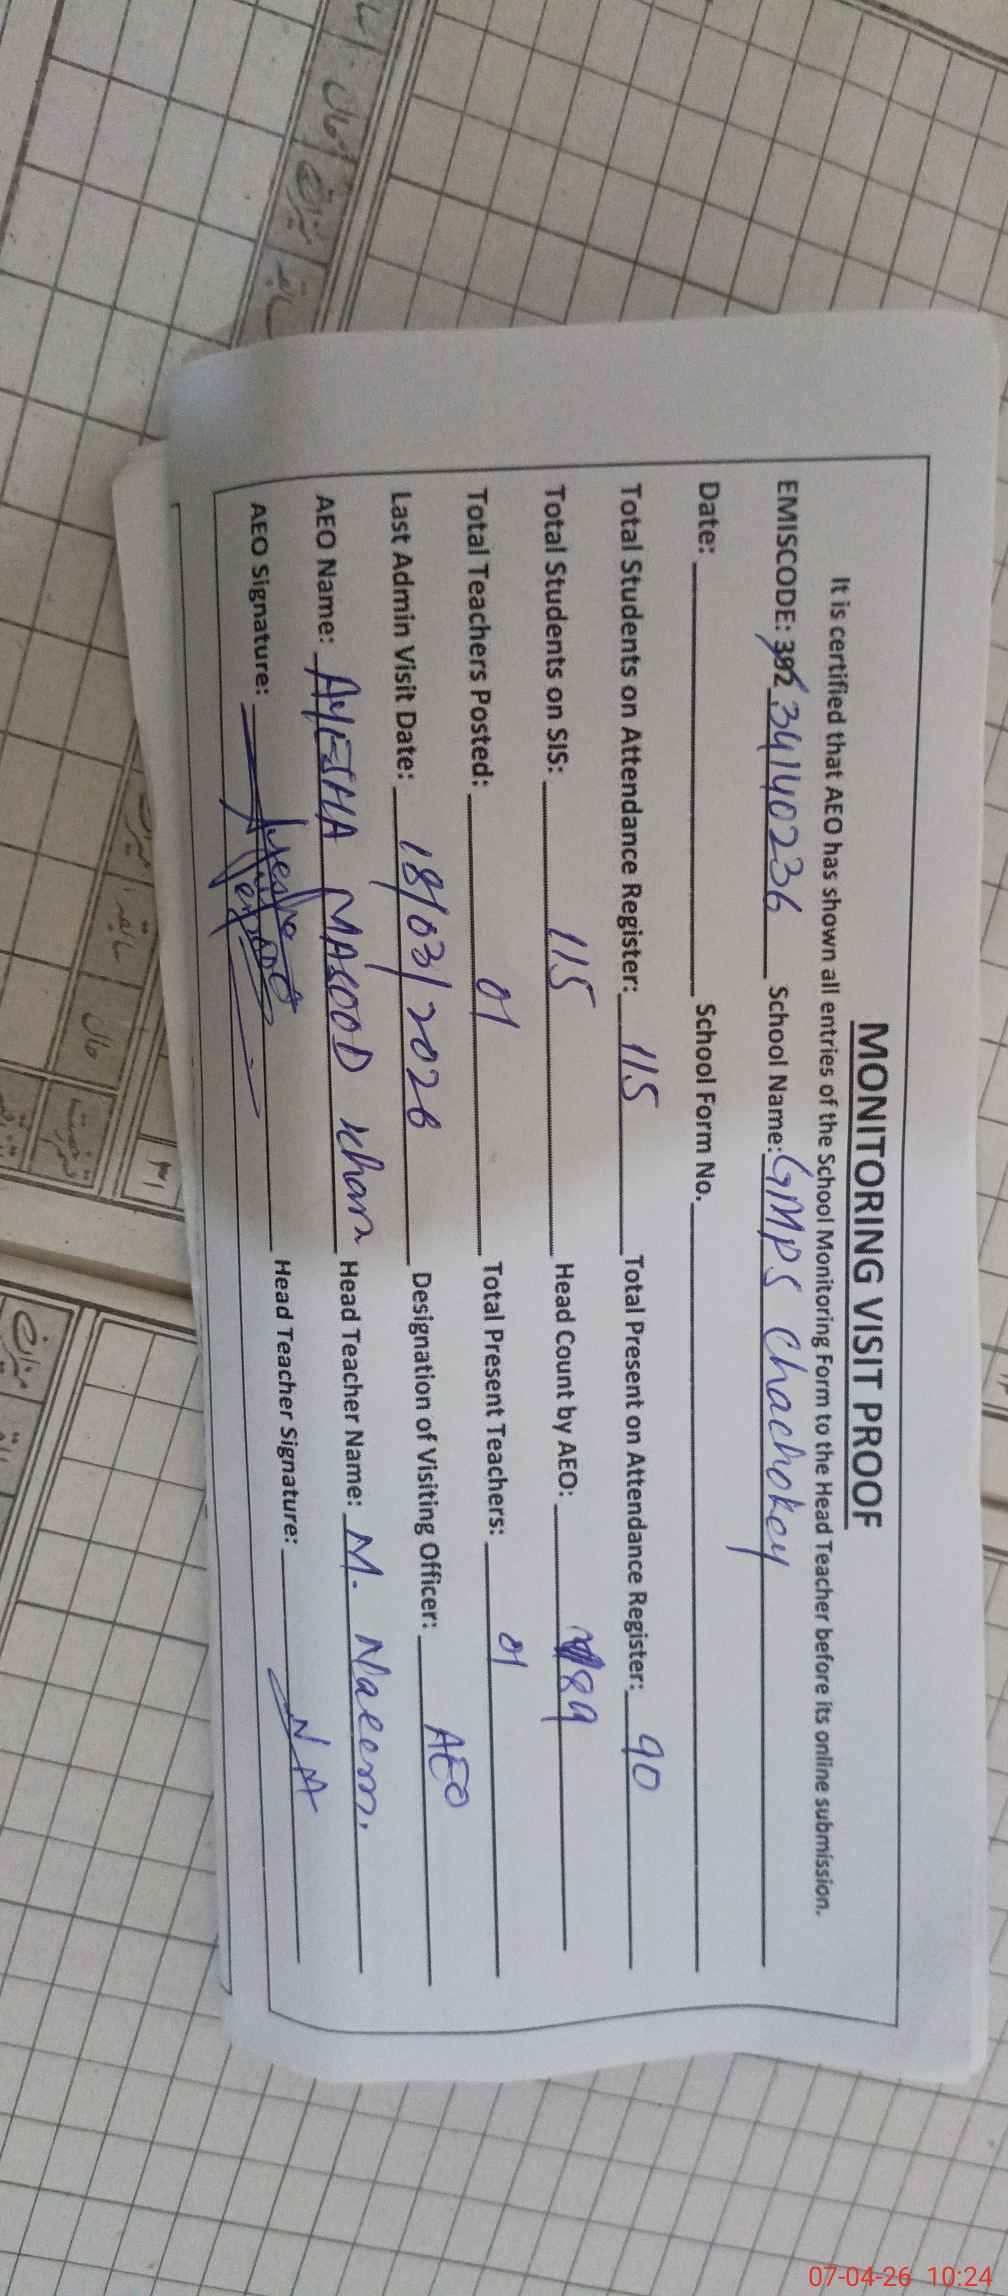 MONITORING VISIT PROOF
It is certified that AEO has shown all entries of the School Monitoring Form to the Head Teacher before its online submission.
EMISCODE: 392 34140236 School Name: GMPS Chachokey
Date: School Form No.
Total Students on Attendance Register: 115 Total Present on Attendance Register: 90
Total Students on SIS: 115 Head Count by AEO: 89
Total Teachers Posted: 01 Total Present Teachers: 01
Last Admin Visit Date: 18/03/2026 Designation of Visiting Officer: AEO
AEO Name: AYESHA MASOOD Khan Head Teacher Name: M. Naeem.
AEO Signature: Ayesha Head Teacher Signature: NA
حال
میزان
سابقہ
میزان
سابقہ
حال
07-04-26 10:24